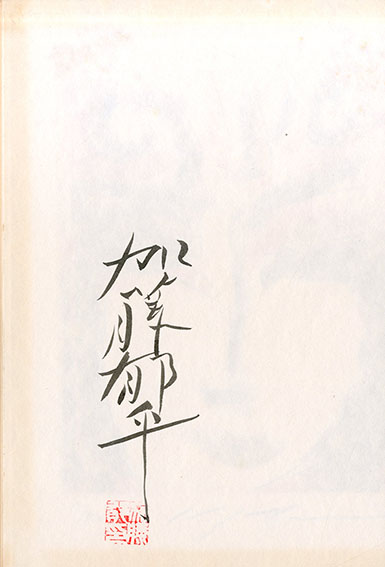 加藤郁乎